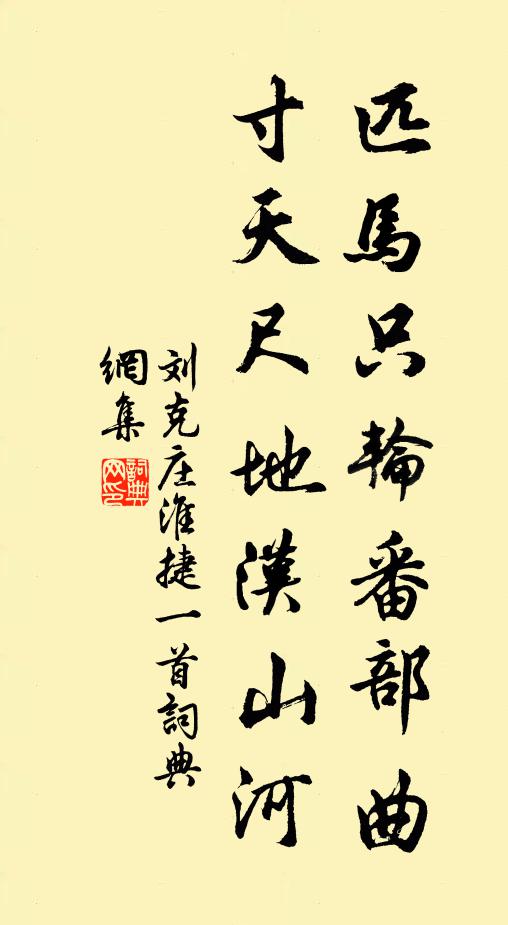 匹馬只輪番部曲
寸天尺地漢山河
刘克庄淮捷一首詞典
網集
詞典网印